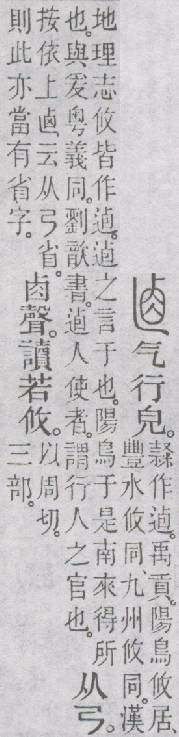 逌气行皃。
隸作逌。禹貢。陽鳥攸居、
豐水攸同、九州攸同。漢
地理志攸皆作逌。逌之言于也。陽鳥于是南來得所
也。與爰粤義同。劉歆書。逌人使者。謂行人之官也。
从弓。
按依上卣云从弓省。
則此亦當有省字。
卣聲。讀若攸。
以周切。
三部。